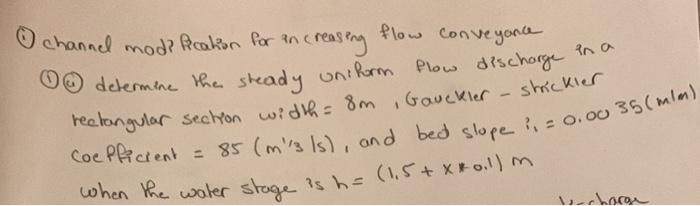 ① channel modification for increasing flow conveyance
①ⓐ determine the steady uniform flow discharge in a
rectangular section width = 8m , Gauckler - strickler
coefficient = 85 (m^1/3 /s), and bed slope i, = 0.0035 (m/m)
when the water stage is h = (1.5 + x * 0.1) m
charge